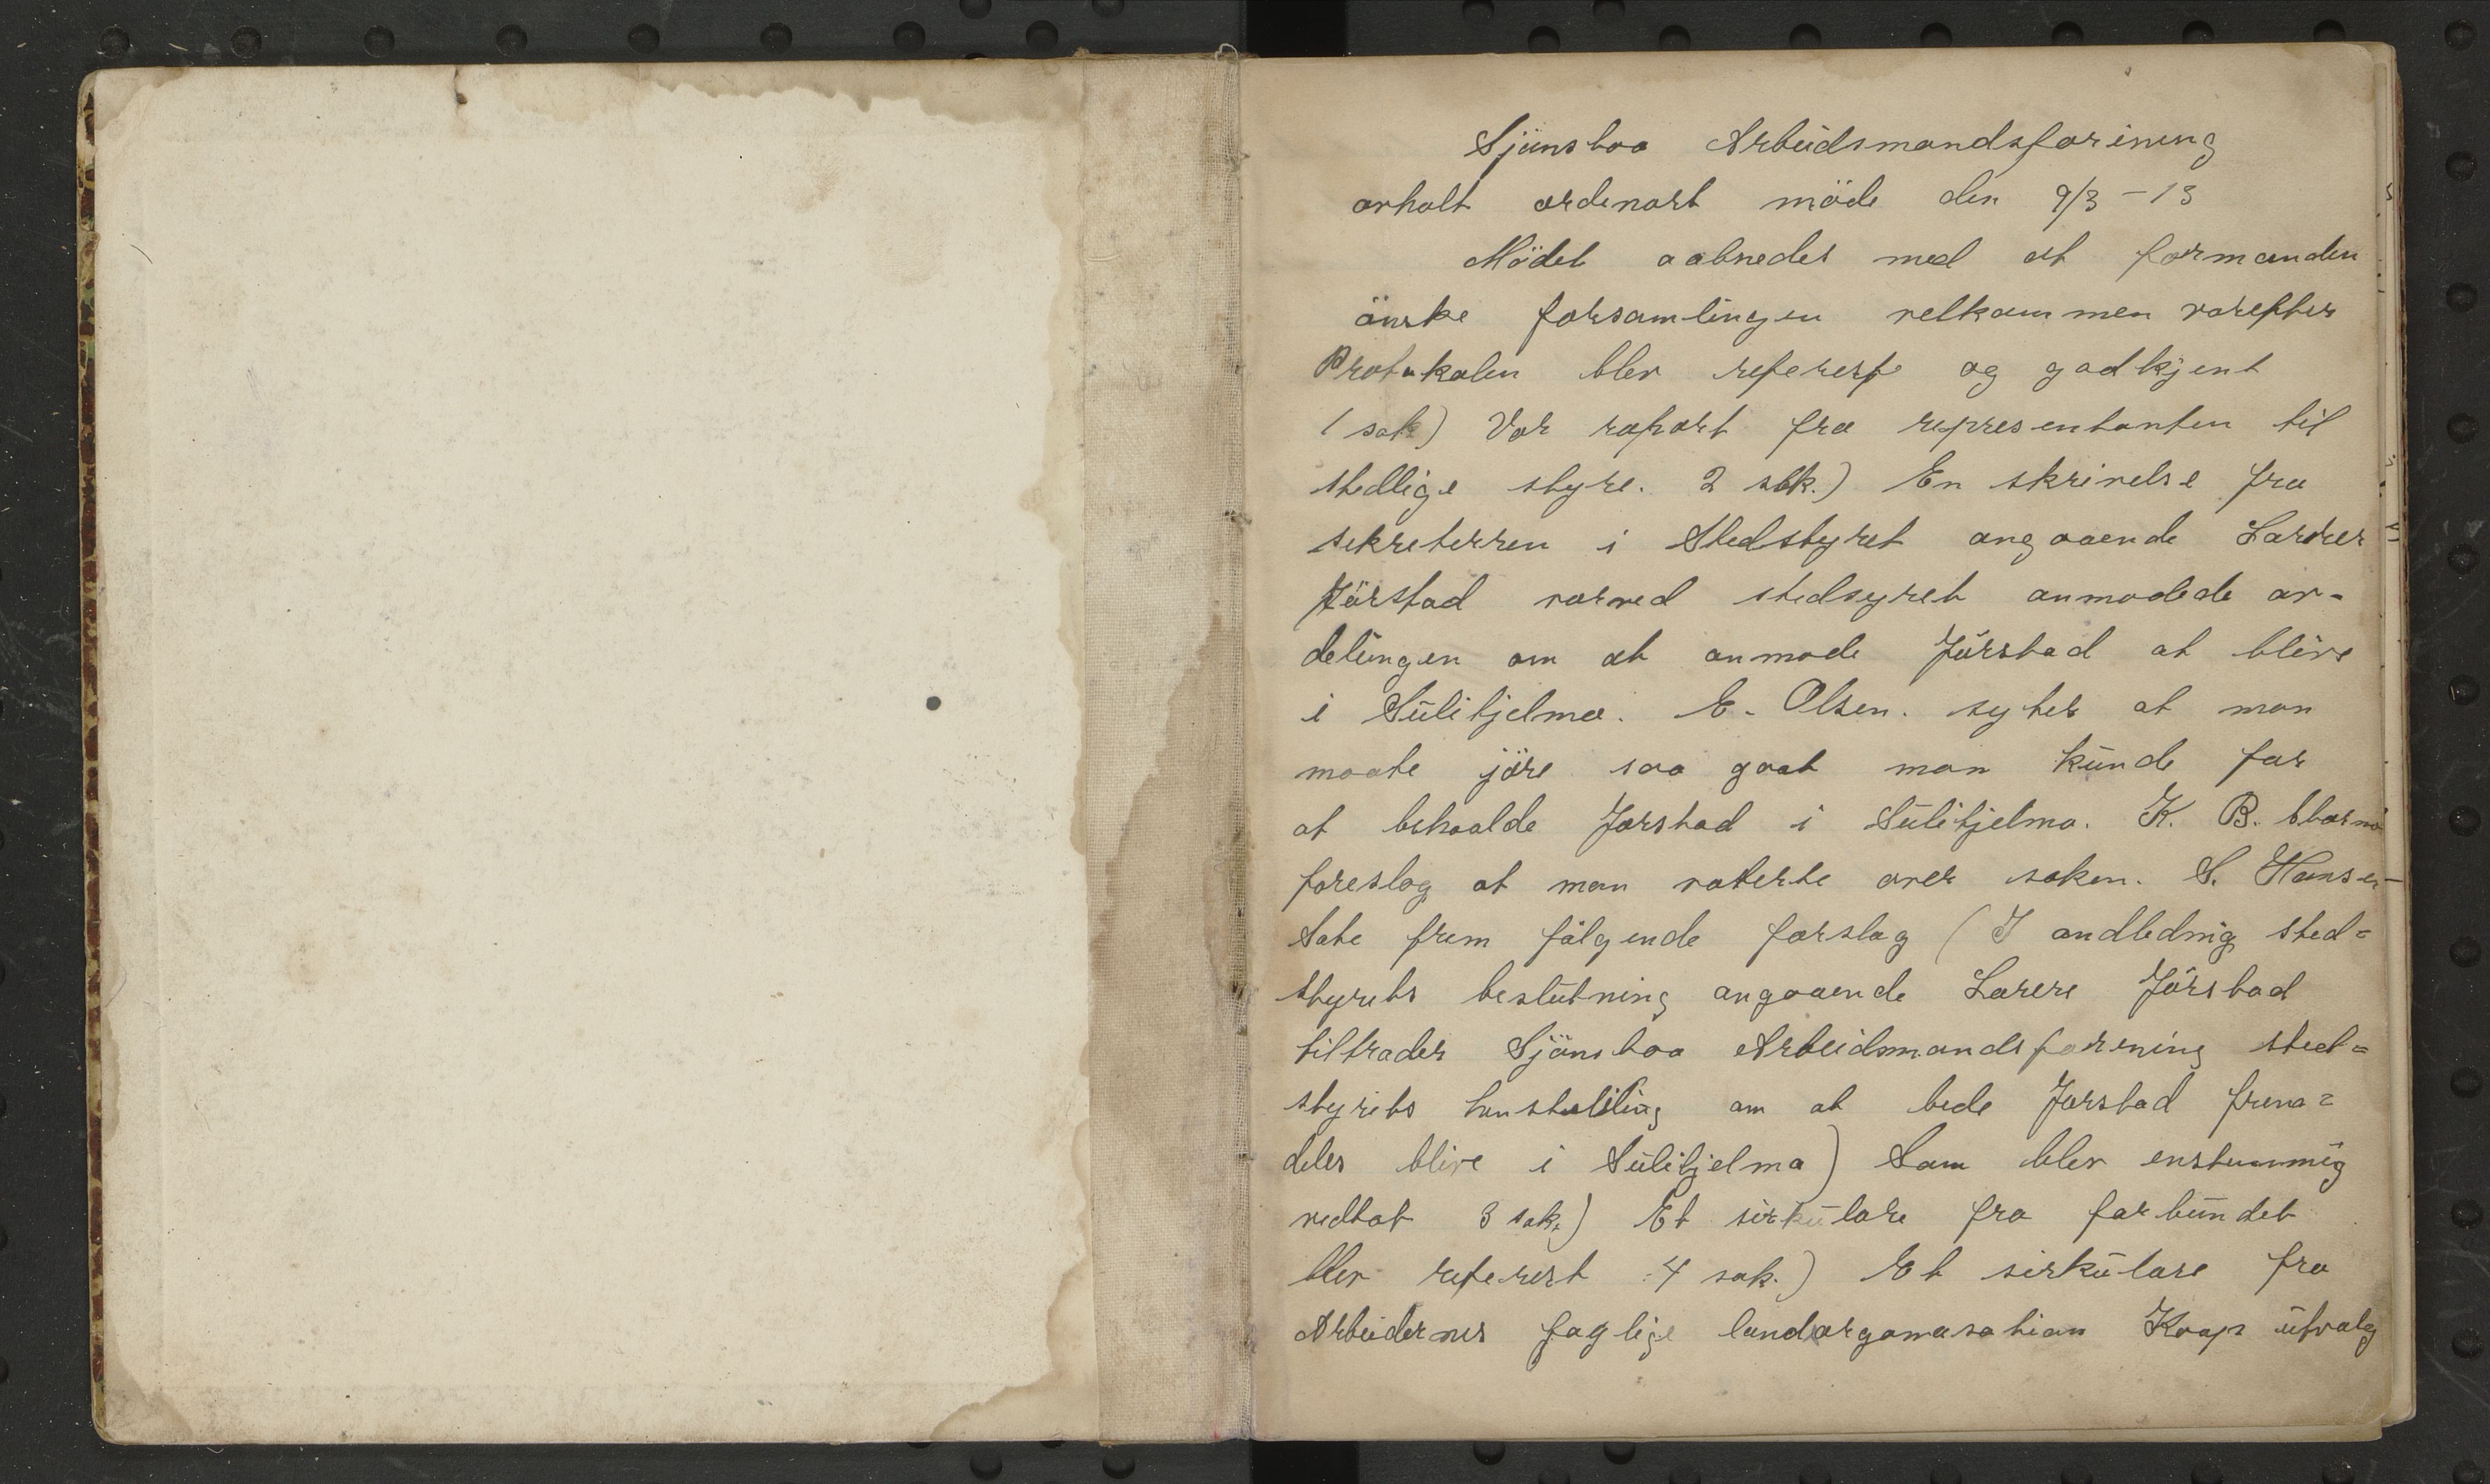 Sjönstaa Arbeidsmandsforening
avholt ordenært möde den 9/3 - 13
Mödet aabnedes med at formanden
önske forsamlingen velkommen varefter
Protokolen blev referert og godkjent
1 sak) Var raport fra representanten til
stedlige styre. 2 sak.) En skrivelse fra
sekreterren i Stedstyret angaaende Lærer
Jörstad varved stedsyret anmodede av-
delingen om at anmode Jörstad at blive
i Sulitjelma. E. Olsen. sytes at man
maate jöre saa gaat man kunde for
at behaalde Jorstad i Sulitjelma. K. B.
foreslog at man voterte over saken. S. Hansen
Sate frem fölgende forslag (I andlednig sted=
styrets beslutning angaaende Lærere Jörstad
tiltræder Sjönstaa Arbeidsmandsforening sted=
styrets henstilling om at bede Jorstad frema=
deles blive i Sulitjelma) Som blev enstemmig
vedtat 3 sak.) Et sirkulære fra forbundet
blev referert 4 sak.) Et sirkulære fra
Arbeidernes faglige landsorganasation Koops utvalg